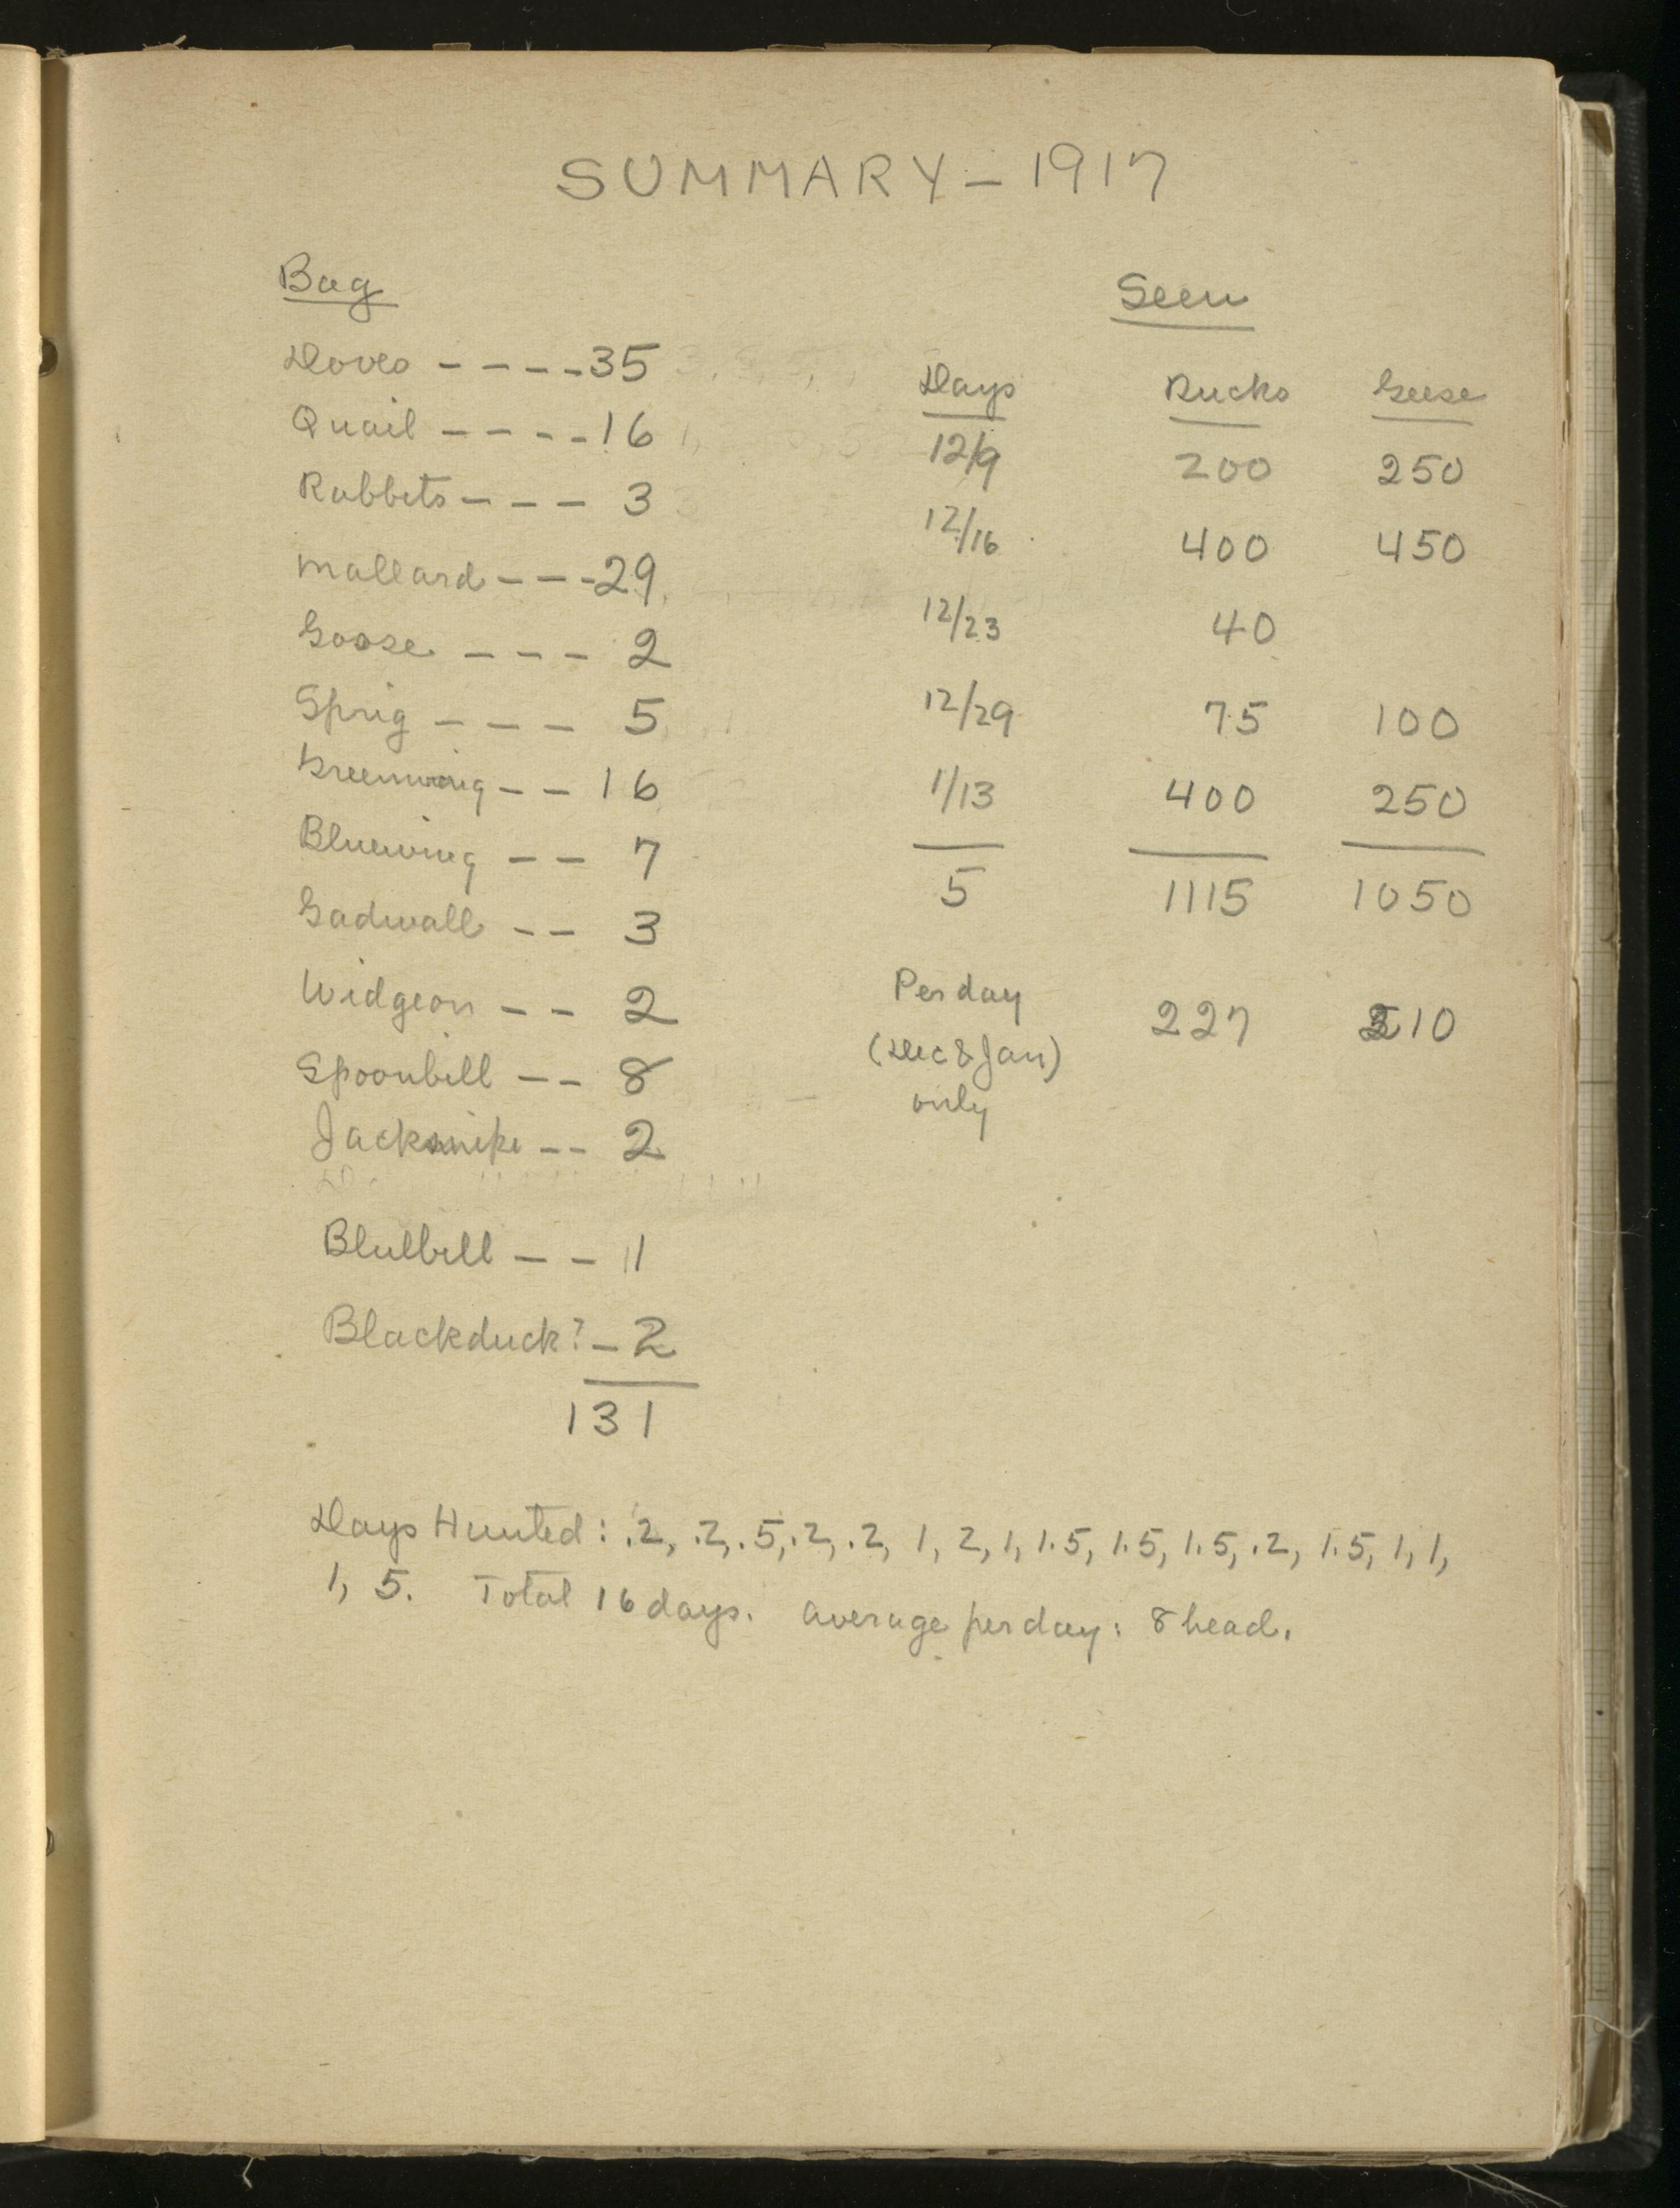 SUMMARY - 1917
Bag
Doves - - - - 35
Quail - - - - 16
Rabbits - - - 3
Mallard - - - 29
Goose - - - 2
Sprig - - - 5
Greenwing - - 16
Bluewing - - 7
Gadwall - - 3
Widgeon - - 2
Spoonbill - - 8
Jacksnipe - - 2
Bluebill - - 1
Blackduck? - 2
131
Seen
Days Ducks Geese
12/9 200 250
12/16 400 450
12/23 40
12/29 75 100
1/13 400 250
5 1115 1050
Per day 227 210
(Dec & Jan)
only
Days Hunted: .2, .2, .5, .2, .2, 1, 2, 1, 1.5, 1.5, 1.5, .2, 1.5, 1, 1,
1, 5. Total 16 days. Average per day: 8 head.